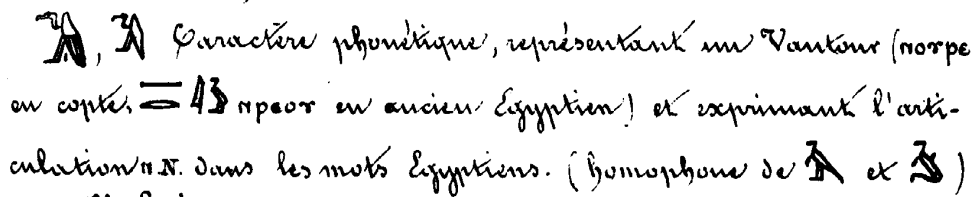 , Caractère phonétique, représentant un Vautour (ⲛⲟⲩⲣⲉ
en copte, ⲛⲣⲉⲟⲩ en ancien Égyptien) et exprimant l'arti-
culation ⲛ.N. dans les mots Égyptiens. (homophone de et )